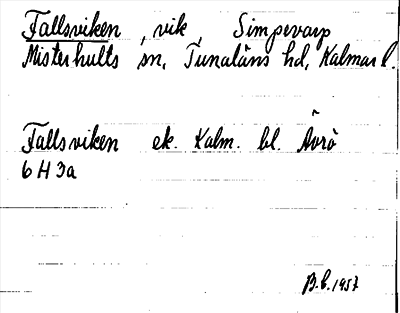 Fallsviken, vik, Simpevarp
Misterhults sn, Tunaläns hd, Kalmar l.
Fallsviken ek. Kalm. bl. Ävrö
6 H 3a
B.l. 1957